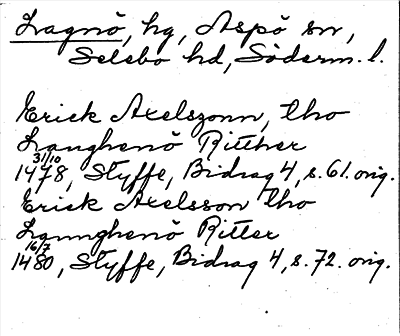 Lagnö, hg, Aspö sn,
Selebo hd, Söderm. l.
Erick Axelszonn, tho
Laughenö Ritther
31/10
1478, Styffe, Bidrag 4, s. 61. orig.
Erick Axelsson tho
Launghenö Ritter
16/7
1480, Styffe, Bidrag 4, s. 72. orig.